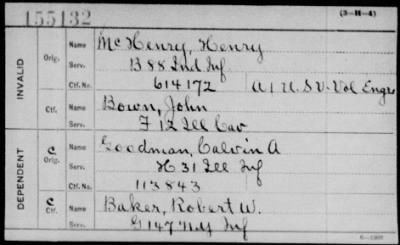 155132
(3-H-4)
INVALID
Orig.
Name McHenry, Henry
Serv. B 88 Ind Inf
Ctf. No. 614172 A 1 U.S.V-Vol Engrs
Ctf.
Name Bown, John
Serv. F 12 Ill Cav
DEPENDENT
C Orig.
Name Goodman, Calvin A
Serv. H 31 Ill Inf
Ctf. No. 113843
C Ctf.
Name Baker, Robert W.
Serv. G 147 N.Y Inf